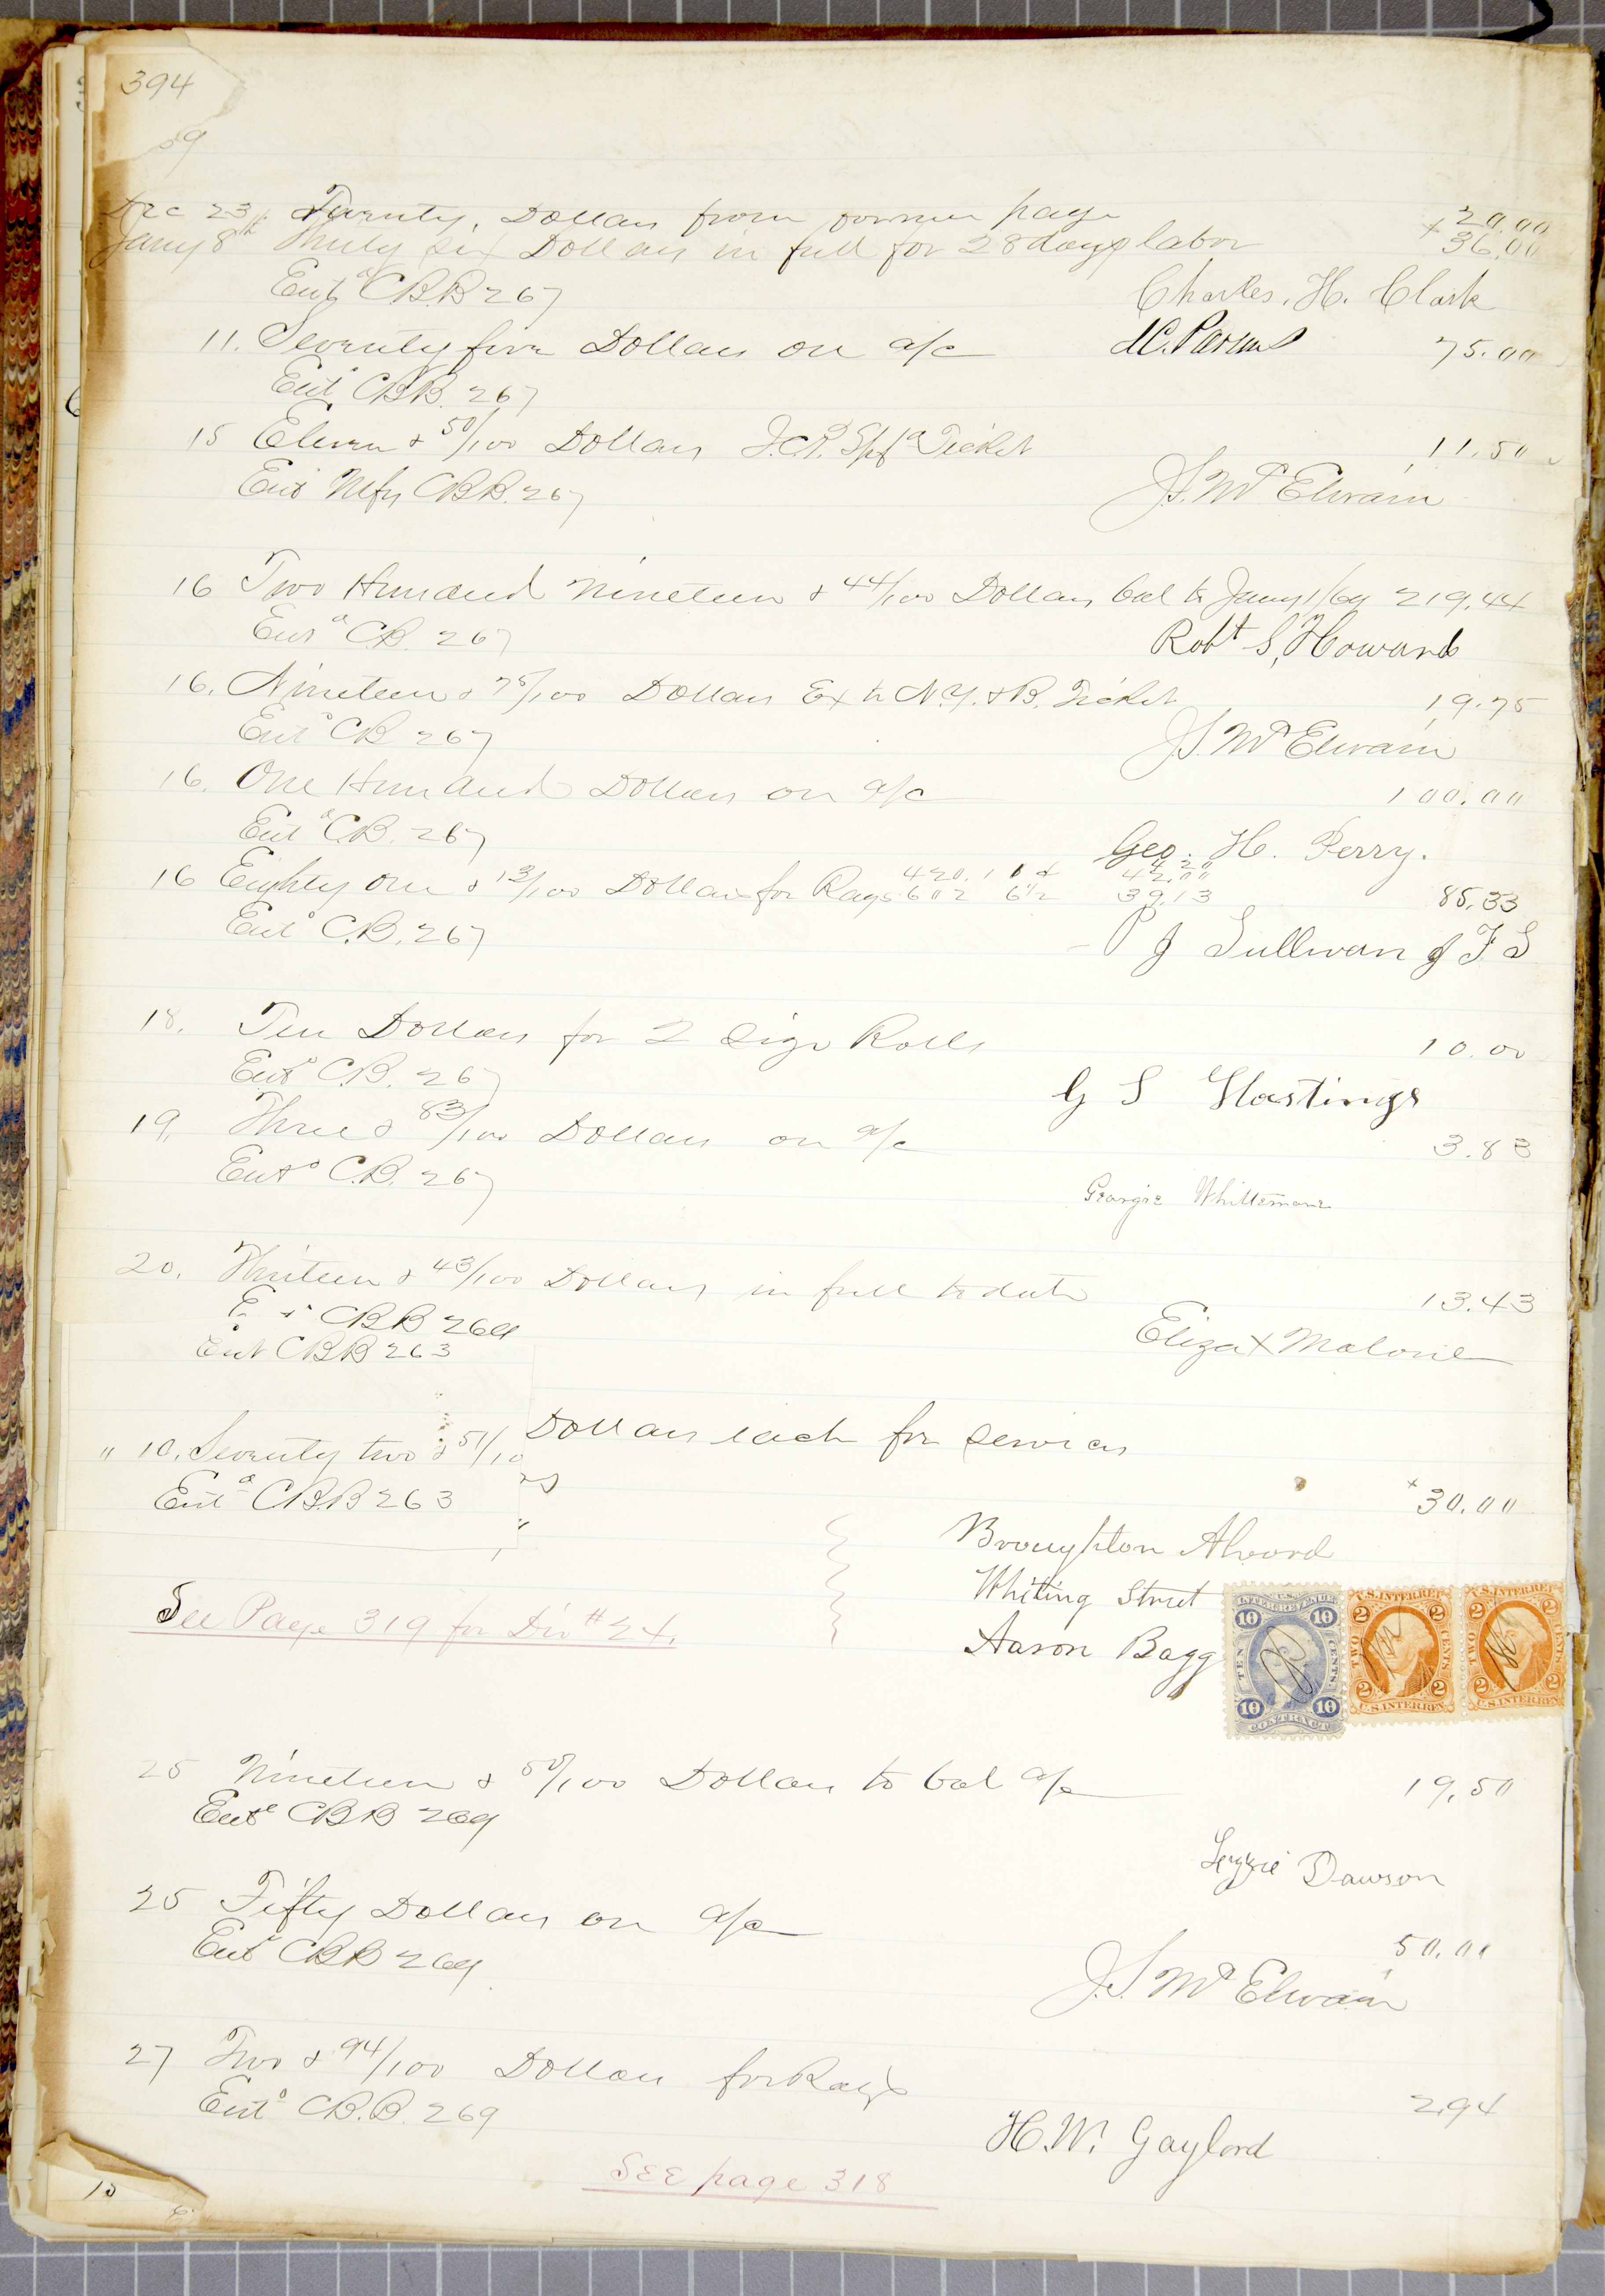 394
59
Dec 23 Twenty Dollars from former page 20.00
Jany 8th Thirty six Dollars in full for 28 days labor 36.00
Entd C.B.B 267 Charles. H. Clark
11. Seventy five Dollars on a/c 75.00
Entd CBB. 267
15 Eleven & 50/100 Dollars Ticket 11.50
Entd Mfy CBB. 267 J.S. McElwain
16 Two Hundred Nineteen & 44/100 Dollars bal to Jany 1/69 219.44
Entd C.B. 267 Robt S. Howard
16. Nineteen & 75/100 Dollars Ex to N.Y. & B. Ticket 19.75
Entd CB 267 J.S. McElwain
16. One Hundred Dollars on a/c 100.00
Entd C.B. 267 Geo. H. Perry.
4.20
420. 10 42.00
16 Eighty One & 13/100 Dollars for Rags 602 6 1/2 39.13 85.33
Entd C.B. 267 P J Sullivan J F S
18. Ten Dollars for 2 Rolls 10.00
Entd C.B. 267 G S Hastings
19. Three & 83/100 Dollars on a/c 3.83
Entd C.B. 267 Georgie Whittemore
20. Thirteen & 43/100 Dollars in full to date 13.43
CBB 269 Eliza X Malone
Ent CBB 263
Dollars each for services
" 10. Seventy two & 51/10
30.00
Entd CB.B 263
Broughton Alvord
Whiting Street
See Page 319 for Div # 24.
Aaron Bagg
U.S. INTER. REVENUE
10 10
TEN CENTS
10 10
CONTRACT
U.S. INTER. REV.
2 2
TWO CENTS
2 2
U.S. INTER. REV.
U.S. INTER. REV.
2 2
TWO CENTS
2 2
U.S. INTER. REV.
25 Nineteen & 50/100 Dollars to bal a/c 19.50
Entd CBB 269
Lizzie Dawson
25 Fifty Dollars on a/c 50.00
Entd CBB 269 J.S. McElwain
27 Two & 94/100 Dollars for Rags 2.94
Entd C.B.B. 269 H.W. Gaylord
SEE page 318
15